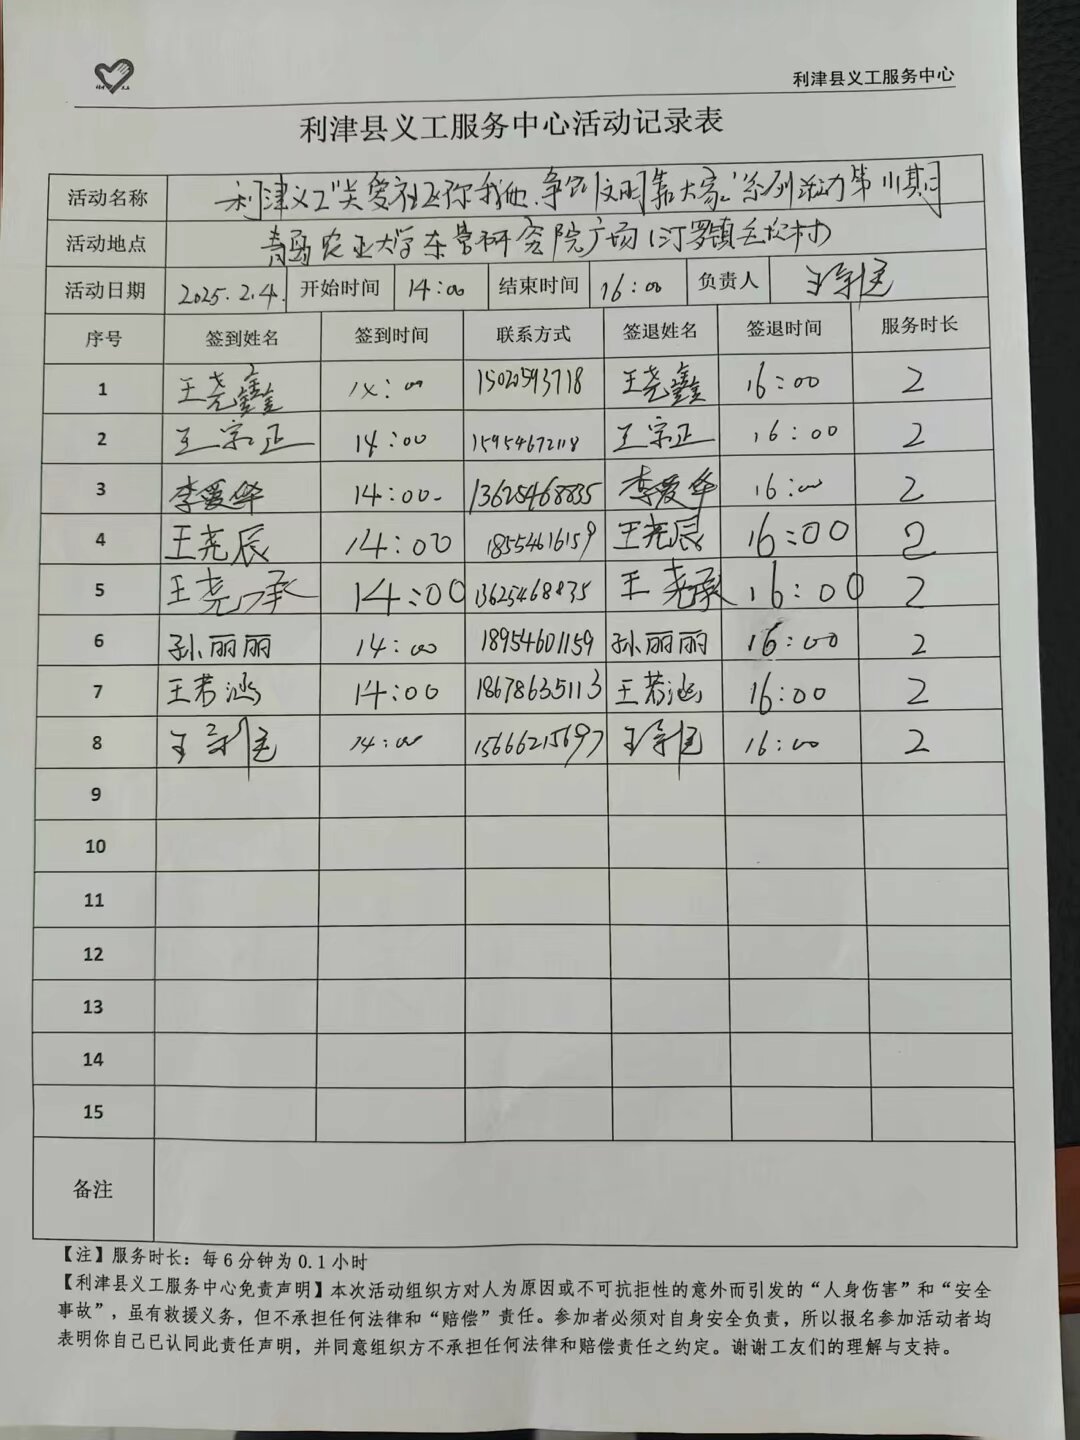 利津县义工服务中心
利津县义工服务中心活动记录表
活动名称 利津义工"关爱社区你我他、争创文明靠大家"系列活动第111期
活动地点 青岛农业大学东营研究院广场(汀罗镇毛坨村)
活动日期 2025.2.4. 开始时间 14:00 结束时间 16:00 负责人
序号 签到姓名 签到时间 联系方式 签退姓名 签退时间 服务时长
1 王尧鑫 14:00 15020593718 王尧鑫 16:00 2
2 王宗正 14:00 15954672118 王宗正 16:00 2
3 李爱华 14:00 13625468835 李爱华 16:00 2
4 王尧辰 14:00 18554616159 王尧辰 16:00 2
5 王尧承 14:00 13625468835 王尧承 16:00 2
6 孙丽丽 14:00 18954601159 孙丽丽 16:00 2
7 王若涵 14:00 18678635113 王若涵 16:00 2
8 14:00 15666215697 16:00 2
9
10
11
12
13
14
15
备注
【注】服务时长：每6分钟为0.1小时
【利津县义工服务中心免责声明】本次活动组织方对人为原因或不可抗拒性的意外而引发的“人身伤害”和“安全
事故”，虽有救援义务，但不承担任何法律和“赔偿”责任。参加者必须对自身安全负责，所以报名参加活动者均
表明你自己已认同此责任声明，并同意组织方不承担任何法律和赔偿责任之约定。谢谢工友们的理解与支持。